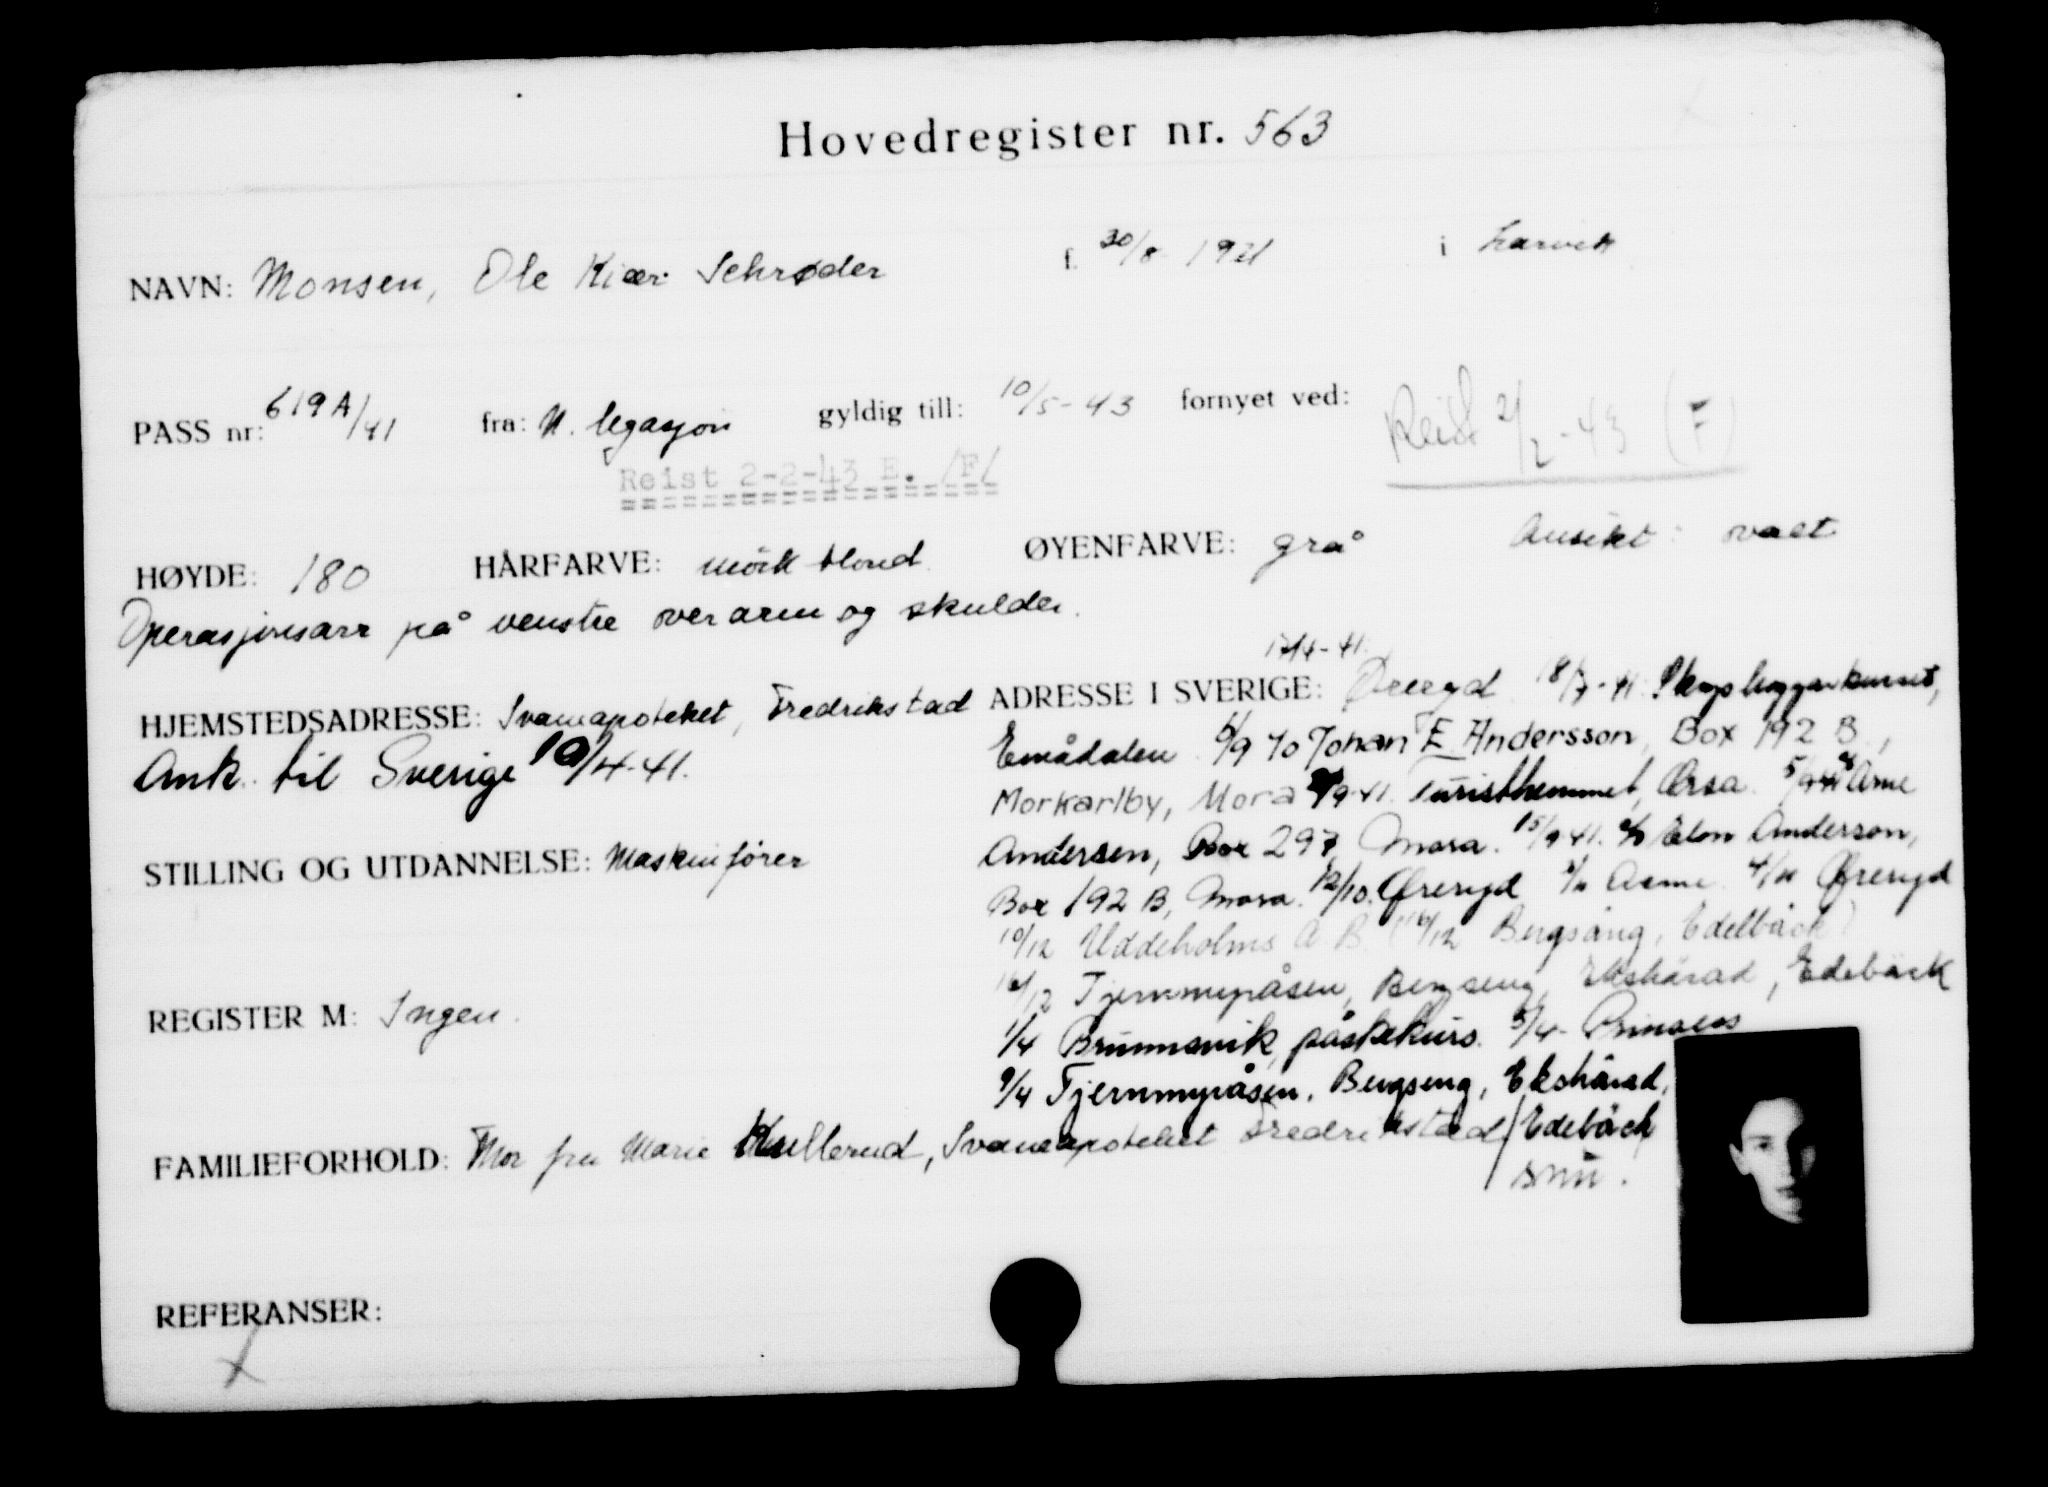 Hovedregister nr. 563
NAVN: Monsen, Ole Kiær Schrøder f. 30/8 1921 i Larvik
PASS nr: 619A/41 fra: N. legasjon gyldig till: 10/5-43 fornyet ved:
Reist 2/2-43 (F)
Reist 2-2-43 E. /F/
HØYDE: 180 HÅRFARVE: mörk blond ØYENFARVE: grå Ansikt: ovalt
Operasjonsarr på venstre overarm og skulder.
17/4-41.
HJEMSTEDSADRESSE: Svaneapoteket, Fredrikstad
Ank. til Sverige 10/4-41.
ADRESSE I SVERIGE: Øreryd 18/7-41 Skogshuggarkurset,
Emådalen 6/9 c/o Johan E. Andersson, Box 192 B.,
Morkarlby, Mora /9-41. Turisthemmet, Orsa. 5/9-41 c/o Arne
Andersen, Box 297, Mora. 15/9-41. c/o Elon Anderson,
Box 192 B, Mora. 12/10. Øreryd /11 Asmi 4/11 Øreryd
10/12 Uddeholms A.B. (16/12 Bergsång, Edelbäck)
16/12 Tjernmyråsen, Bergseng, Ekshärad, Edebäck
1/4 Brunnsvik, påskekurs. 5/4- Prinsens
9/4 Tjernmyråsen, Bergseng, Ekshärad,
Edebäck
snu.
STILLING OG UTDANNELSE: Maskinfører
REGISTER M: Ingen.
FAMILIEFORHOLD: Mor fru Marie Kullerud, Svaneapoteket Fredrikstad
REFERANSER:
X